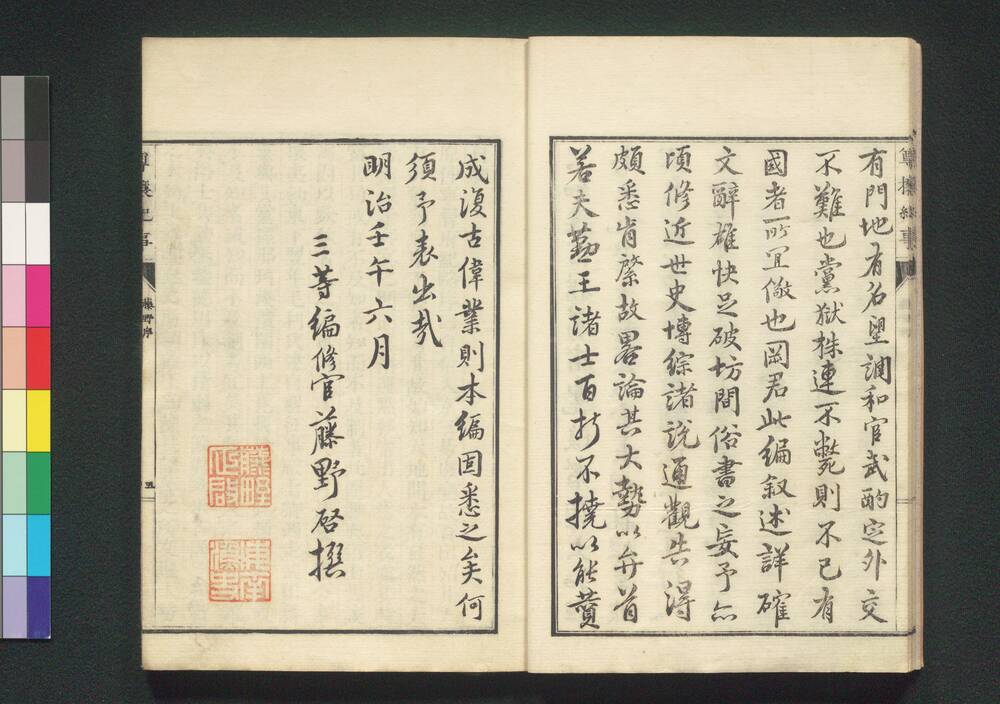 有門地有名望調和官武酌定外交
不難也黨獄株連不斃則不已有
國者所宜儆也岡君此編叙述詳確
文辭雄快足破坊間俗書之妄予亦
頃修近世史博綜諸說通觀失得
頗悉肯綮故畧論其大勢以弁首
若夫勤王諸士百折不撓以能賛
成復古偉業則本編固悉之矣何
須予表出哉
明治壬午六月
三等編修官藤野啓撰
尊攘紀事
藤野序
五